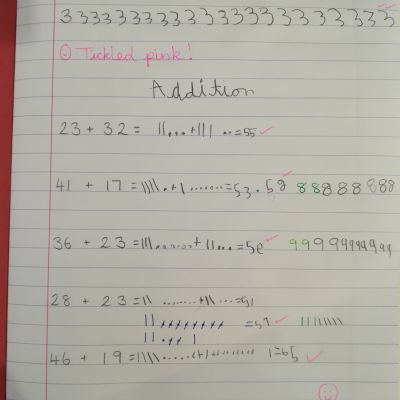 3333333333333333333333
Tickled pink!
Addition
23 + 32 = ||...+||| ..=55 ✓
41 + 17 =||||.+| .......=53.58 ✓ 88888 888
36 + 23 =|||......+||...=5e ✓ 99999999999
28 + 23 =|| ........+||...=51
|| ⁄⁄⁄⁄⁄⁄⁄⁄ =51 ✓ ||||||||
||.,, |
46 + 19 =||||......(+)......... |=65 ✓